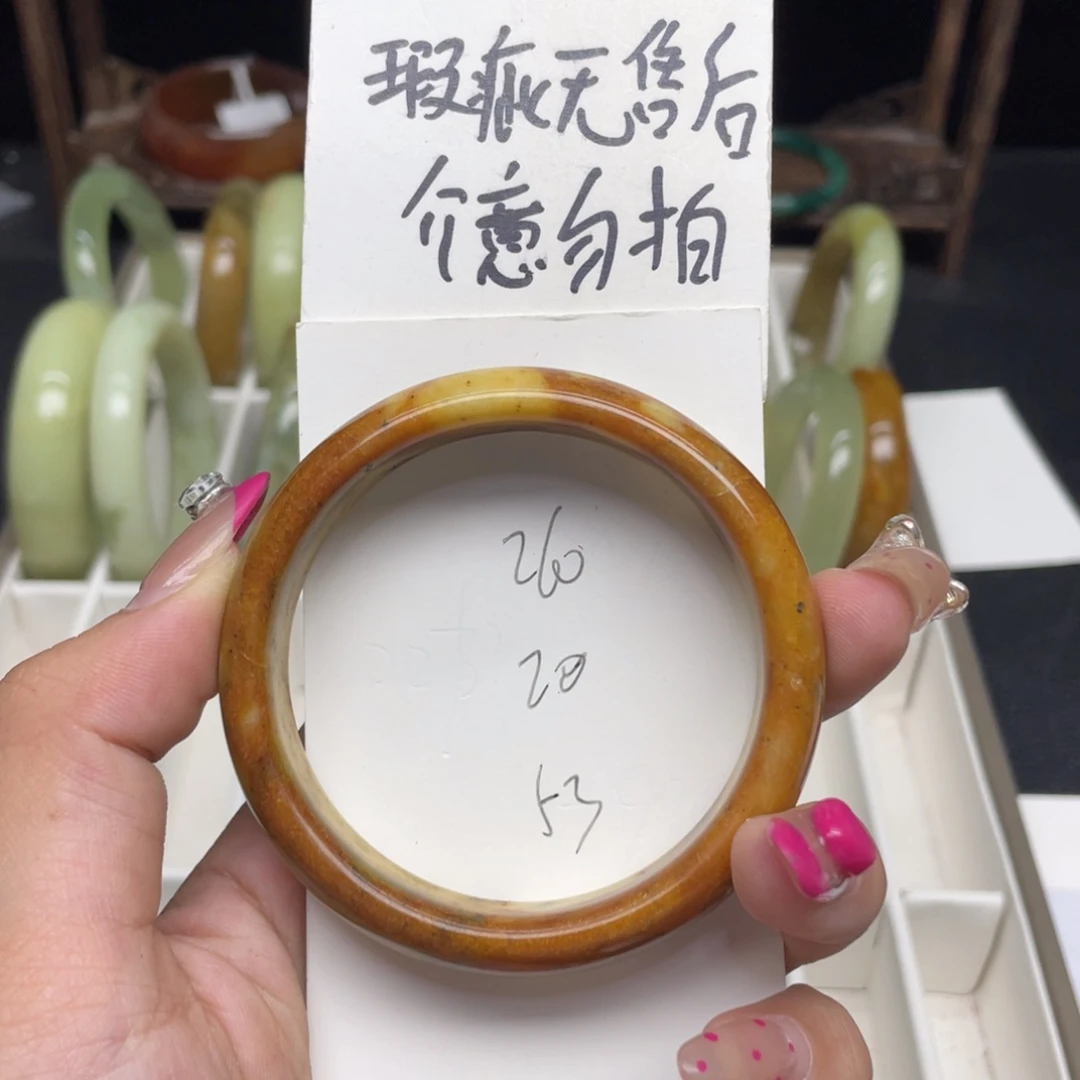 瑕疵无售后
介意勿拍
26
20
53